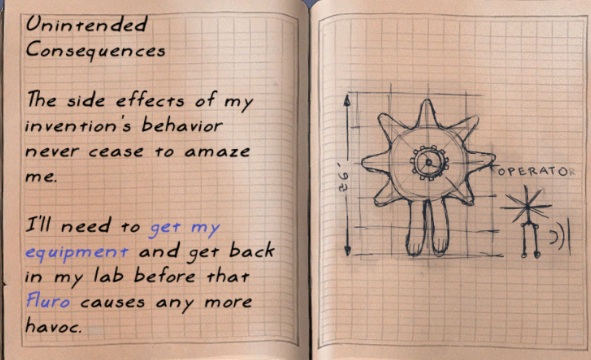 Unintended
Consequences
The side effects of my
invention's behavior
never cease to amaze
me.
I'll need to get my
equipment and get back
in my lab before that
Fluro causes any more
havoc.
OPERATOR